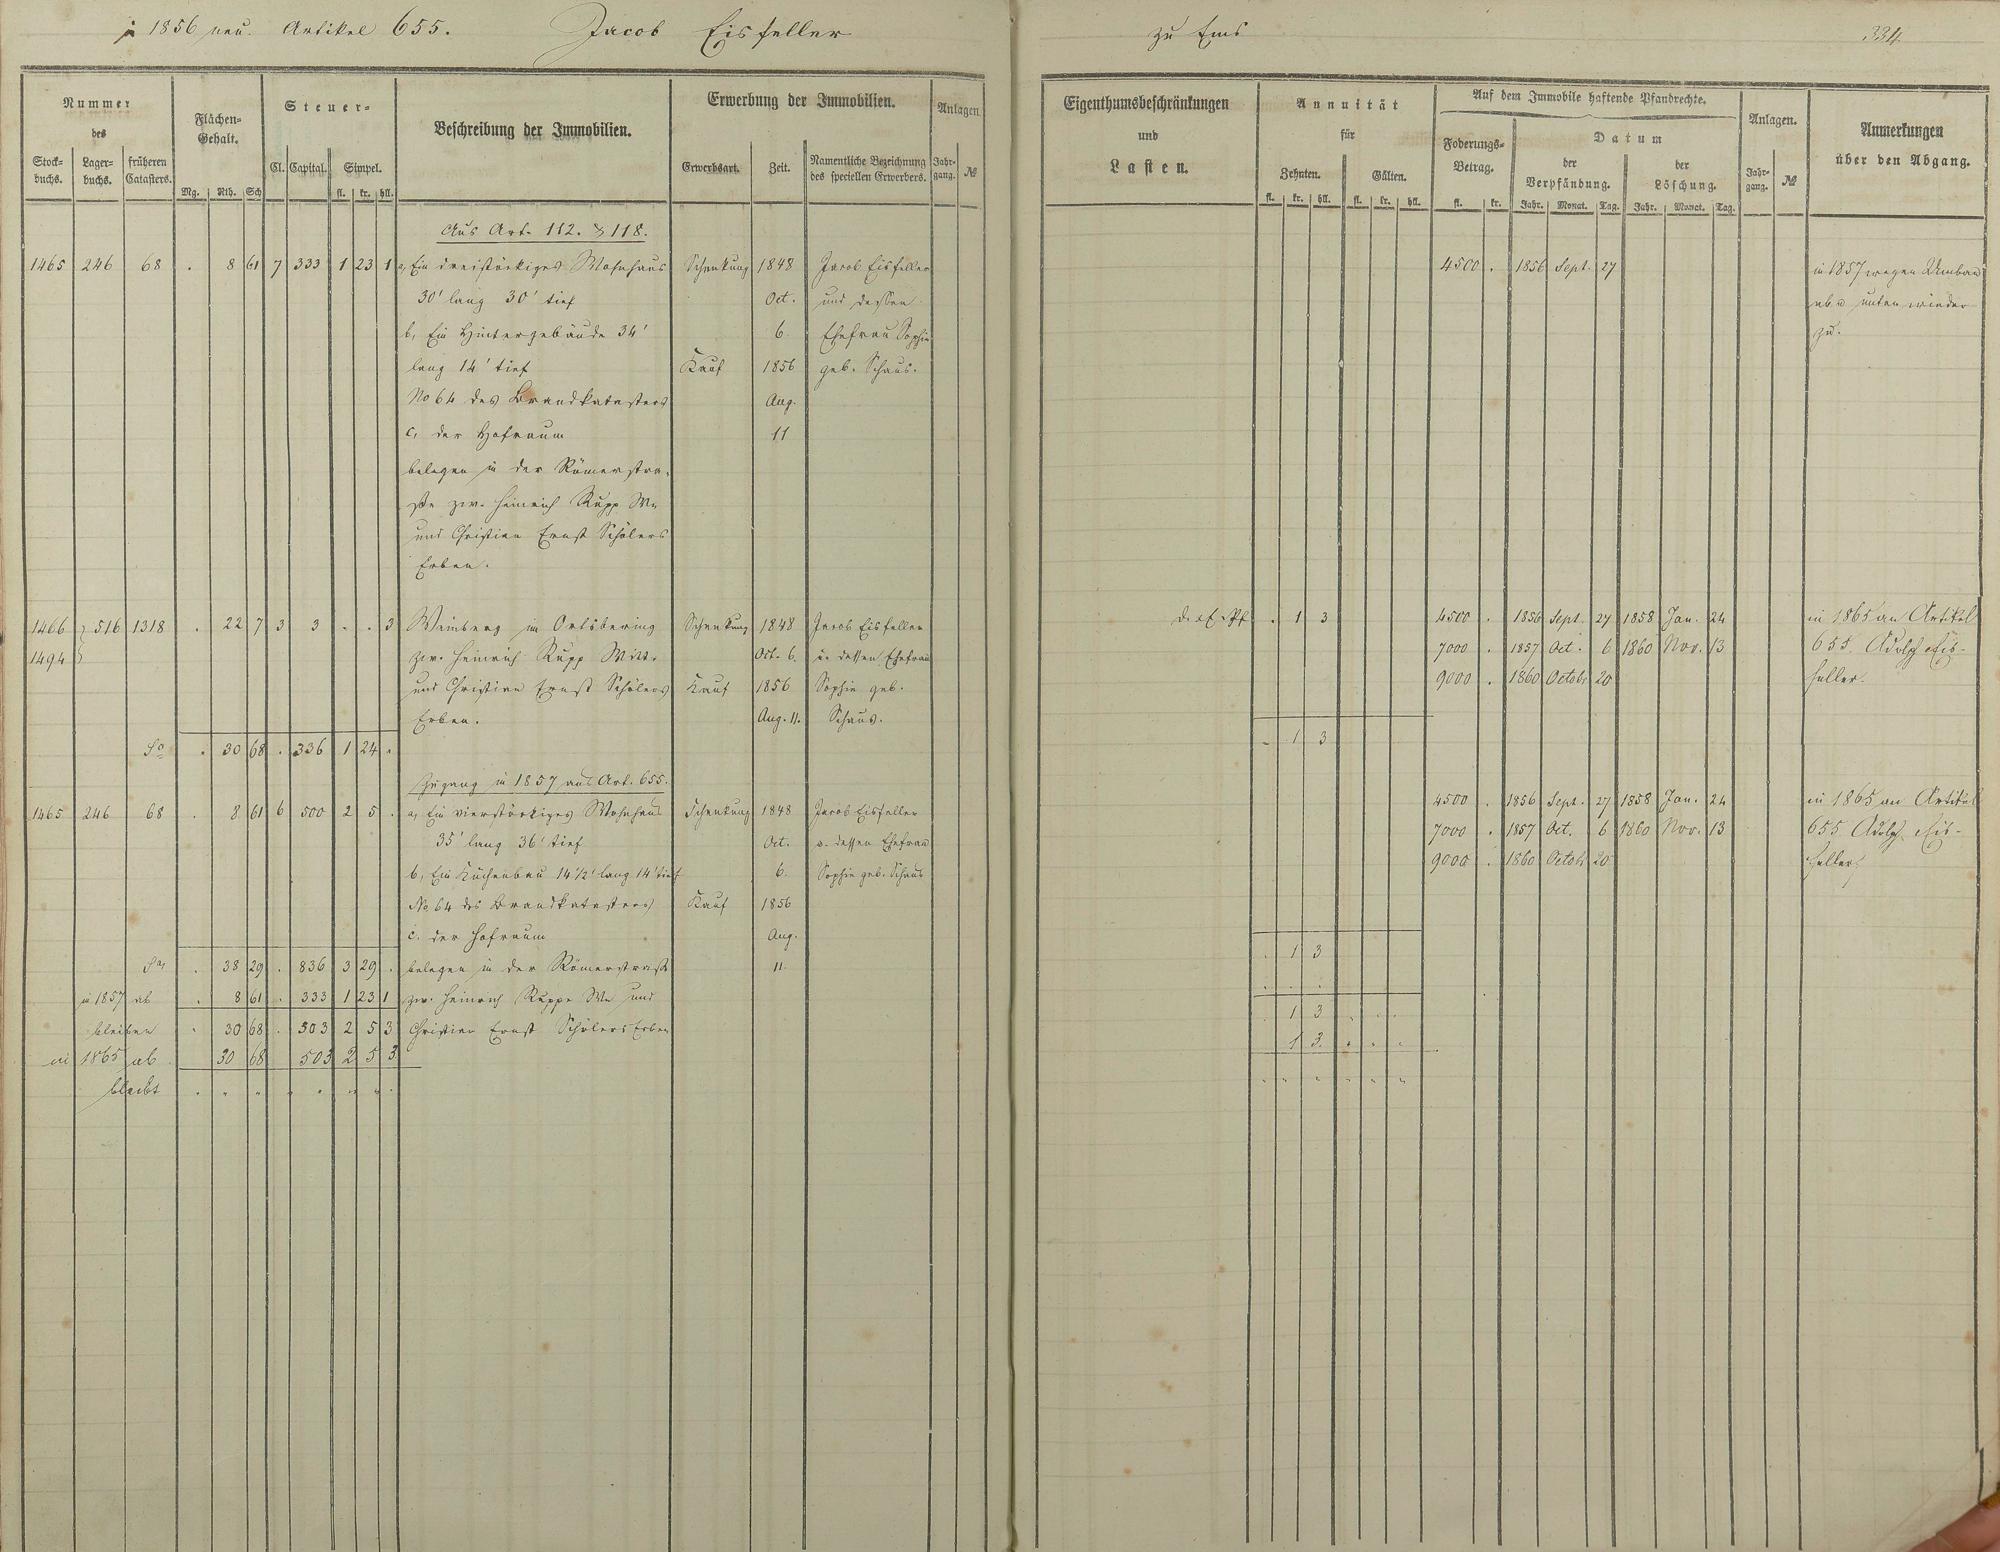 in 1856 neu. Artikel 655. Jacob Eisfeller zu Ems 334
Nummer des
Stock-buchs. Lager-buchs. früheren Catasters.
Flächen-Gehalt.
Mg. Rth. Sch
Steuer-
Cl. Capital. Simpel.
fl. kr. hll.
Beschreibung der Immobilien.
Erwerbung der Immobilien.
Erwerbsart. Zeit. Namentliche Bezeichnung des speciellen Erwerbers.
Anlagen
Jahr-gang. №
Eigenthumsbeschränkungen und Lasten.
Annuität für
Zehnten. Gülten.
fl. kr. hll. fl. kr. hll.
Auf dem Immobile haftende Pfandrechte.
Foderungs-Betrag.
fl. kr.
Datum
der Verpfändung. der Löschung.
Jahr. Monat. Tag. Jahr. Monat. Tag.
Anlagen.
Jahr-gang. №
Anmerkungen über den Abgang.
Aus Art. 112. & 118.
1465 246 68 . 8 61 7 333 1 23 1 a, Ein dreistöckiges Wohnhaus Schenkung 1848 Jacob Eisfeller 4500 . 1856 Sept. 27 in 1857 wegen Umbau
30' lang 30' tief Oct. und dessen ab u unten wieder
b, Ein Hintergebäude 34' 6. Ehefrau Sophie zu.
lang 14' tief Kauf 1856 geb. Schaus.
No 64 des Brandkatasters Aug.
c, der Hofraum 11
belegen in der Römerstra-
ße zw. Heinrich Rupp We
und Christian Ernst Schölers
Erben.
1466 } 516 1318 . 22 7 3 3 . . 3 Weinberg im Ortsbering Schenkung 1848 Jacob Eisfeller . 1 3 4500 . 1856 Sept. 27 1858 Jan. 24 in 1865 an Artikel
1494 zw. Heinrich Rupp Witt. Oct. 6. u. dessen Ehefrau 7000 . 1857 Oct. 6 1860 Nov. 13 655. Adolph Eis-
und Christian Ernst Schölers Kauf 1856 Sophie geb. 9000 . 1860 Octobr 20 feller.
Erben. Aug. 11. Schaus.
Sa . 30 68 . 336 1 24 . . 1 3
Zugang in 1857 aus Art. 655.
1465 246 68 . 8 61 6 500 2 5 . a, Ein vierstöckiges Wohnhaus Schenkung 1848 Jacob Eisfeller 4500 . 1856 Sept. 27 1858 Jan. 24 in 1865 an Artikel
35' lang 36' tief Oct. u. dessen Ehefrau 7000 . 1857 Oct. 6 1860 Nov. 13 655 Adolph Eis-
b, Ein Küchenbau 14 1/2' lang 14' tief 6. Sophie geb. Schaus 9000 . 1860 Octobr 20 feller
No 64 des Brandkatasters Kauf 1856
c. der Hofraum Aug.
Sa . 38 29 . 836 3 29 . belegen in der Römerstraße 11. . 1 3
in 1857 ab . 8 61 . 333 1 23 1 zw. Heinrich Rupps We und . . .
bleiben . 30 68 . 503 2 5 3 Christian Ernst Schölers Erben 1 3 . . .
in 1865 ab 30 68 503 2 5 3 1 3. . . .
bleibt